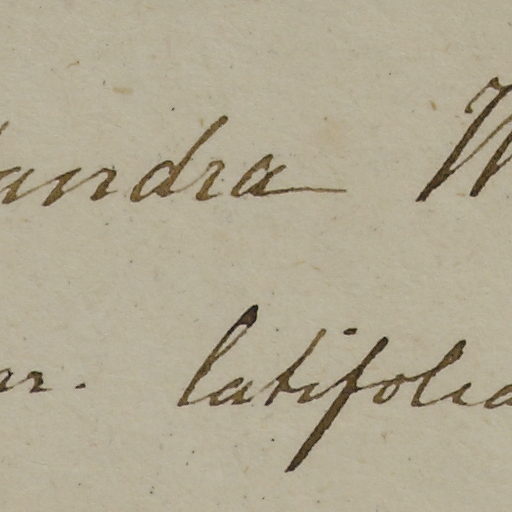 andra W
ar. latifolia